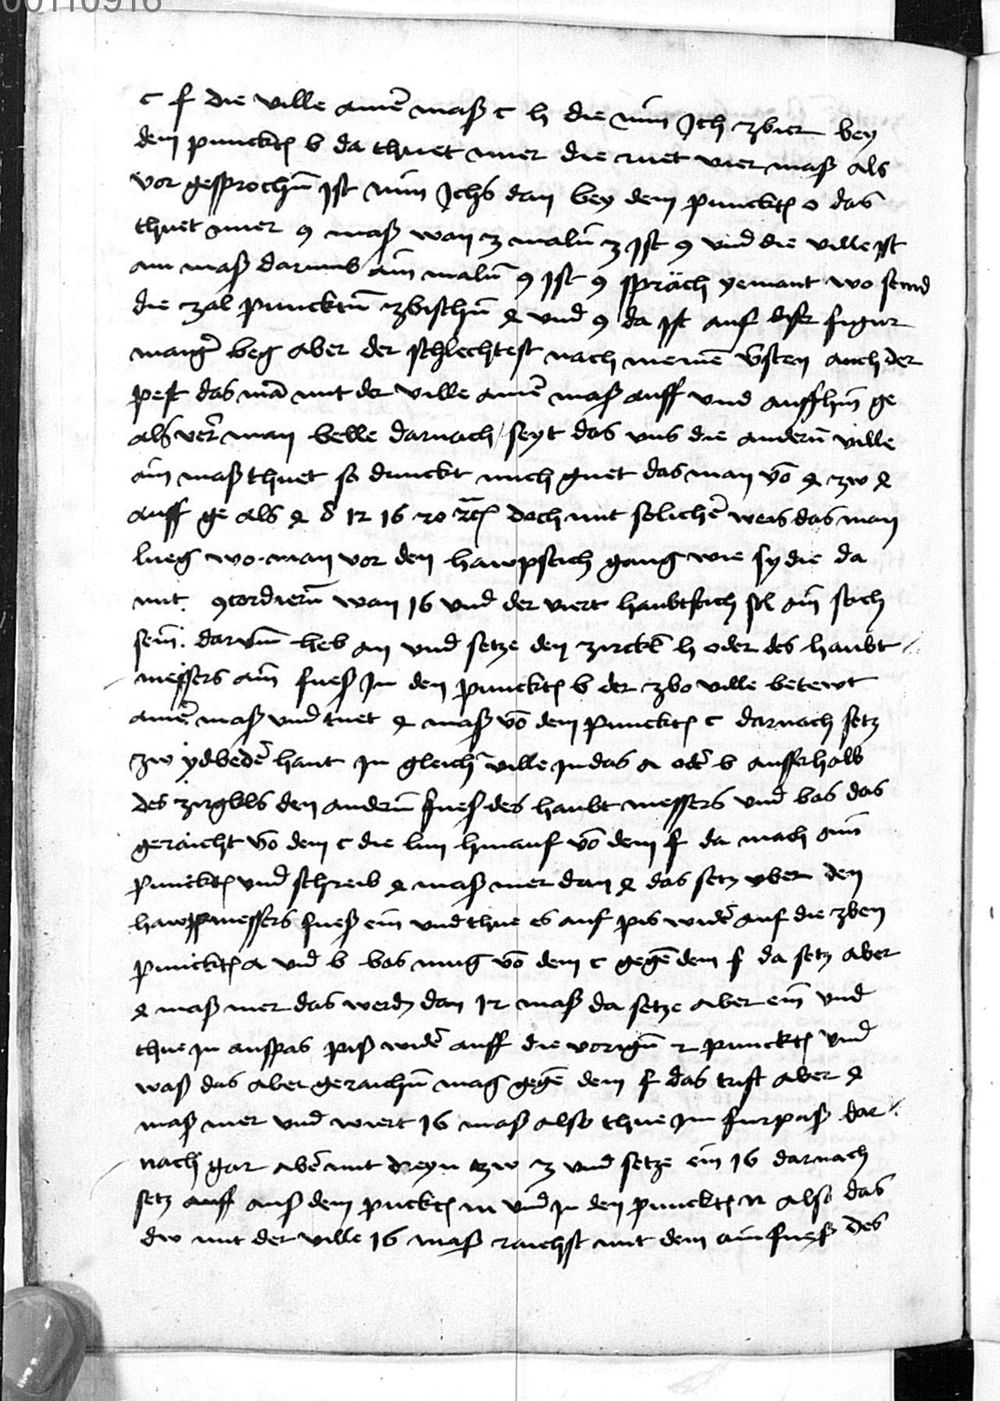 00110916
c f die ville ainer maß c h die nim Jch zbier bey
dem punckt b da thuet nuer die ruet vier maß als
vor gesprochn̄ Jst nim Jchs dan bey dem punckt o das
thuet nuer 9 maß wan 3 maln̄ 3 Jst 9 vnd die ville Jst
ain maß darumb ain maln̄ 9 Jst 9 spräch yemant wo seind
die zal punckten̄ zbischn̄ 4 vnd 9 da Jst auf diser figur
maniger beg aber der schlechtest nach meinem auch der
pest das mā mit der ville ainer maß auff vnd auffhin ge
als ver man belle darnach / seyt das vns die andern̄ ville
ain maß thuet so dunckt mich guet das man vō 4 zw 4
auff ge als 4 8 12 16 20 doch mit solicher weis das man
lueg wo man vor den hawpstich gang wie sy die da
mit 9cordiern̄ wan 16 vnd der viert haubtstich sol ain stich
sein. darvm̄ heb an vnd setze den zirckl h oder des haubt
messers ain fueß Jn den punckt b der zbo ville betewt
ainer maß vnd tuet 4 maß vō dem punckt c darnach setz
zw ydbeder hant Jn gleicher ville Jn das a oder b ausserhalb
des zirgkls den andern̄ fueß des haubt messers vnd bas das
geraicht vō dem c die lini hinauf vō dem f da mach ain
punckt vnd schreib 4 maß mer dan 4 das setz vber den
hawpmessers fueß ein vnd thue es auf pis wider auf die zben
punckt a vnd b bas mug vō dem c gegen dem f da setz aber
4 maß mer das werdn dan 12 maß da setze aber ein vnd
thue Jn auspas piß wider auff die vorign̄ 2 punckt vnd
waß das aber geraichn̄ mag gegen dem f das trift aber 4
maß mer vnd wiert 16 maß also thue Jm furpaß dar
nach gar aber mit dreyn zw 3 vnd setze ein 16 darnach
setz auff auß dem punckt m vnd Jn den punckt n also das
dw mit der ville 16 maß raichst mit dem ain fueß des